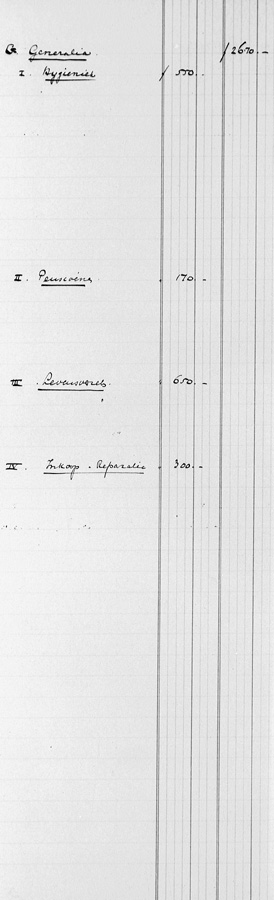 G Generalia / 2670.-
I. Hygiëniek / 550.-
II. Pensioens. 170.-
III. Levensverz. 650.-
IV. Inkoop. Reparatie 300.-